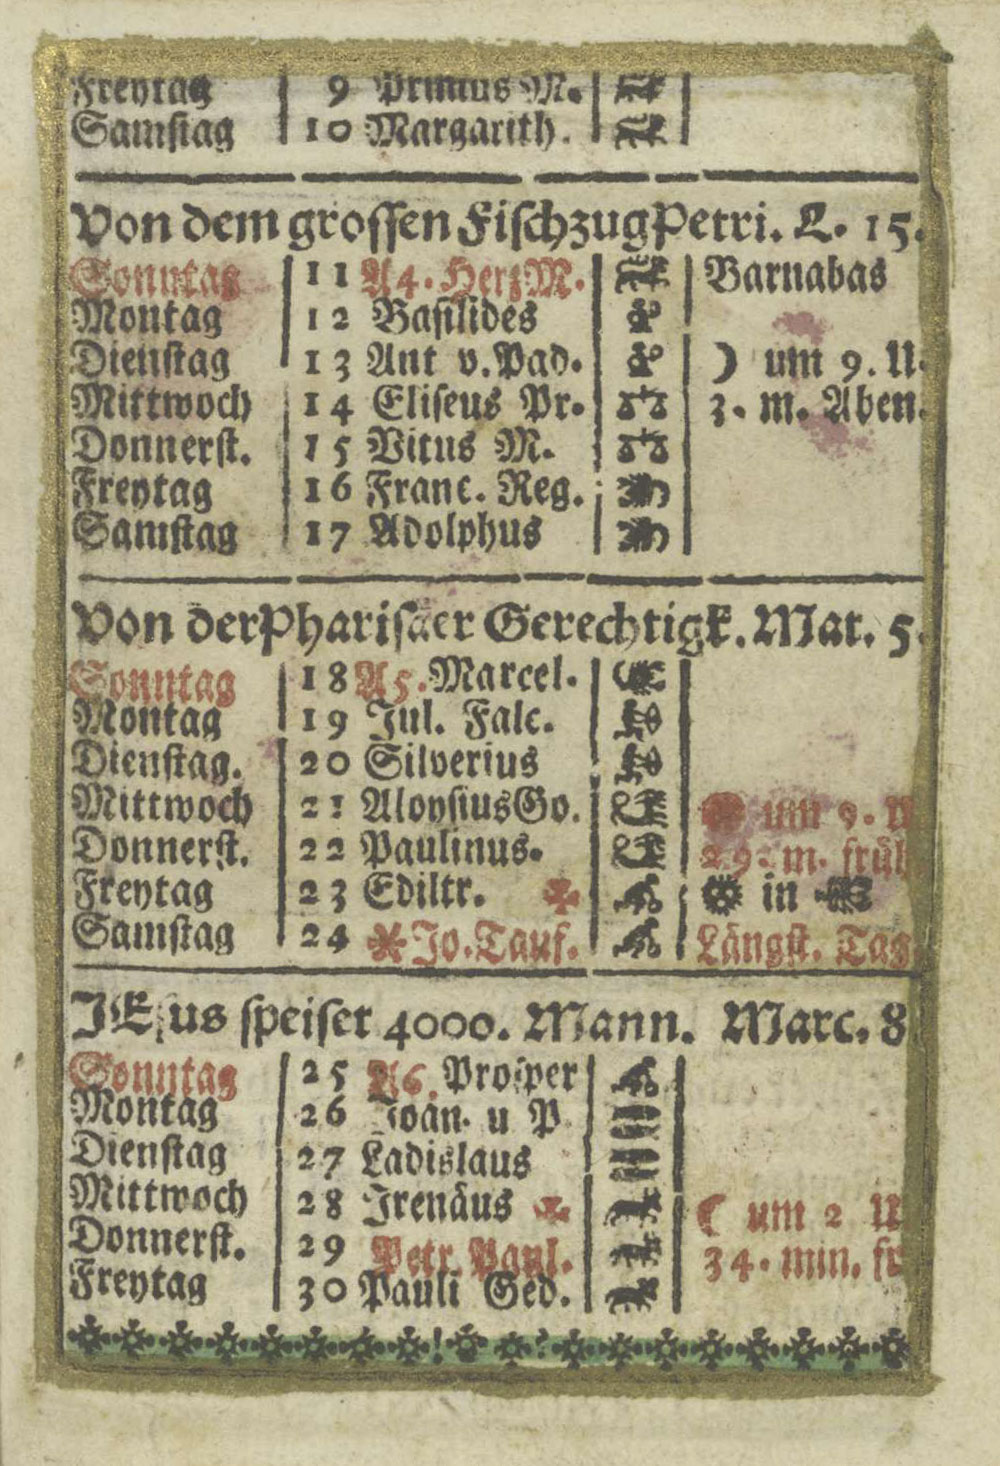 Freytag 9 Primus M.
Samstag 10 Margarith.
Von dem grossen Fischzug Petri. L. 15.
Sonntag 11 A4. Herz M. Barnabas
Montag 12 Basilides
Dienstag 13 Ant v. Pad. ☽ um 9. U.
Mittwoch 14 Eliseus Pr. 3. m. Aben.
Donnerst. 15 Vitus M.
Freytag 16 Franc. Reg.
Samstag 17 Adolphus
Von der Pharisäer Gerechtigk. Mat. 5.
Sonntag 18 A5. Marcel.
Montag 19 Jul. Falc.
Dienstag. 20 Silverius
Mittwoch 21 Aloysius Go. um 9. U
Donnerst. 22 Paulinus. 29. m. früh
Freytag 23 Ediltr. in
Samstag 24 Jo. Tauf. Längst. Tag
JEsus speiset 4000. Mann. Marc. 8
Sonntag 25 A6. Prosper
Montag 26 Joan. u P
Dienstag 27 Ladislaus
Mittwoch 28 Irenäus ☾ um 2 U
Donnerst. 29 Petr. Paul. 34. min. fr
Freytag 30 Pauli Ged.